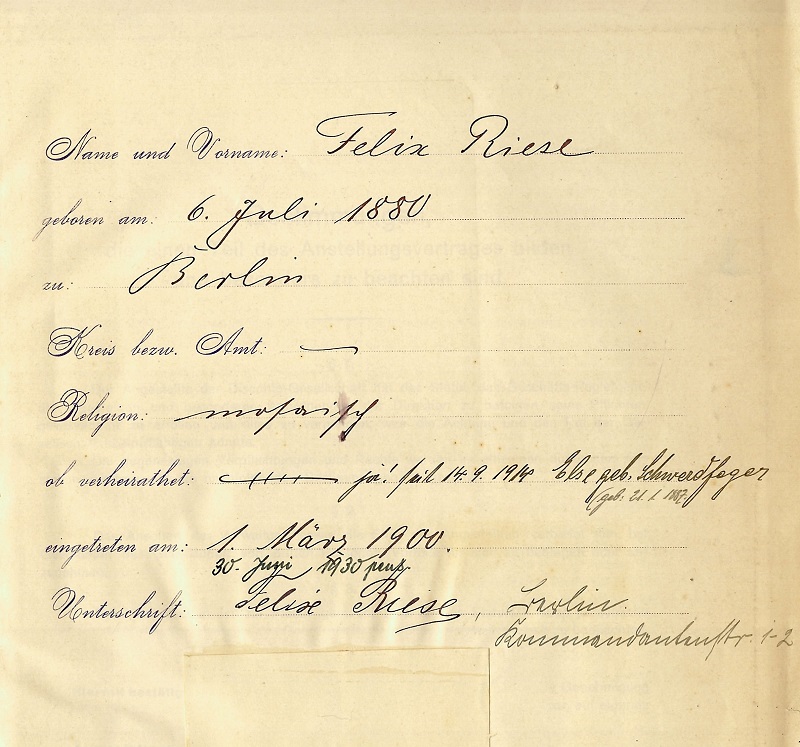 Name und Vorname: Felix Riese
geboren am: 6. Juli 1880
zu: Berlin
Kreis bezw. Amt: —
Religion: mosaisch
ob verheirathet: ja! seit 14.9.1914 Else geb. Schwerdfeger
(geb: 21. 1887.
eingetreten am: 1. März 1900.
30. Juni 1930 pens.
Unterschrift: Felix Riese, Berlin.
Kommandantenstr. 1-2